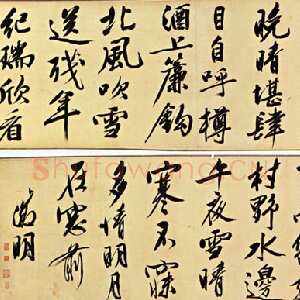 晚晴堪肆
目自呼樽
酒上簾鉤
北風吹雪
送殘年
紀瑞欣看
村野水邊
午夜雪晴
寒不寐
多情明月
在窓前
徵明